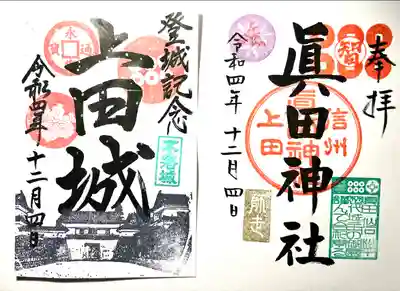 奉拝
眞田神社
令和四年 十二月 四日
信州
眞田神
上田
師走
登城記念
上田城
令和四年 十二月 四日
不落城
永
通
寳